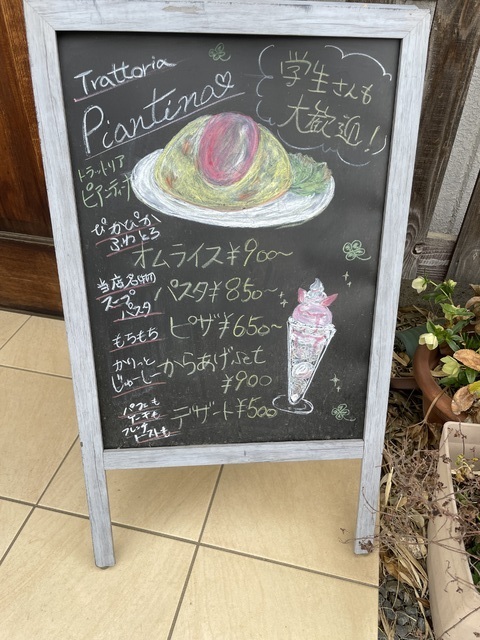 Trattoria
Piantina♡
トラットリア
ピアンティーナ
学生さんも
大歓迎!
ぴかぴか
ふわとろ
オムライス¥900~
当店名物
スープ
パスタ
パスタ¥850~
もちもち
ピザ¥650~
かりっと
じゅーしー
からあげset
¥900
パフェも
ケーキも
フレンチ
トーストも
デザート¥500